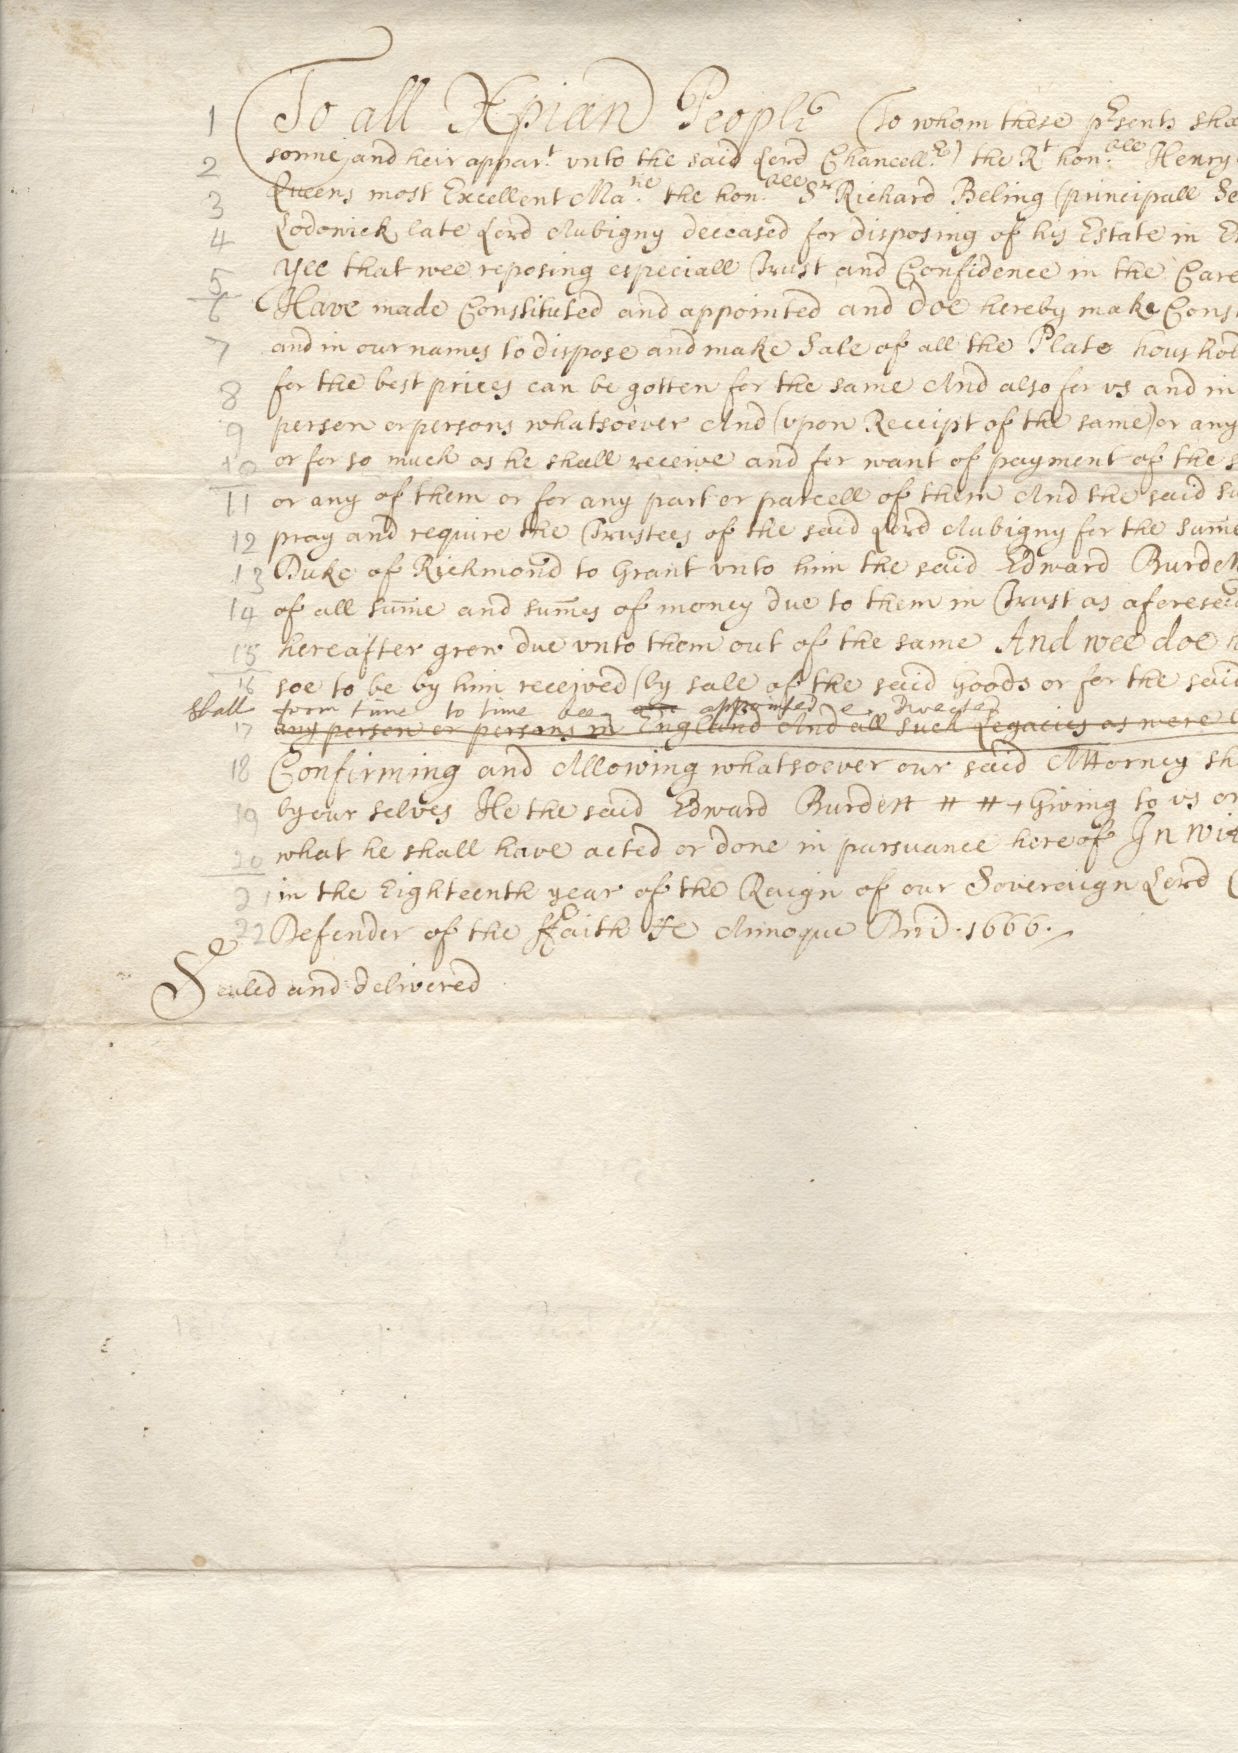 1 To all Xpian People (To whom these pr̃sents sha
2 sonne and heir appar.t vnto the said Lord Chancell.r) the R.t hon.ble Henry
3 Queens most Excellent Ma.tie the hon.ble S.r Richard Beling (principall Se
4 Lodowick late Lord Aubigny deceased for disposing of his Estate in E
5 Yee that wee reposing especiall Trust and Confidence in the Care
6 Have made Constituted and appointed and doe hereby make Const
7 and in our names to dispose and make Sale of all the Plate houshol
8 for the best prices can be gotten for the same And also for vs and in
9 person or persons whatsoever And (vpon Receipt of the same) or any
10 or for so much as he shall receive and for want of payment of the s
11 or any of them or for any part or parcell of them And the said Su
12 pray and require the Trustees of the said Lord Aubigny for the sum̃e
13 Duke of Richmond to Grant vnto him the said Edward Burdett
14 of all sum̃e and sum̃es of money due to them in Trust as aforesaid
15 hereafter grow due vnto them out of the same And wee doe
16 soe to be by him received (by sale of the said Goods or for the said
shall from time to time bee appointed directed
17 any person or persons in England And all such Legacies as were
18 Confirming and Allowing whatsoever our said Attorney sh
19 by our selves He the said Edward Burdett # # + Giving to vs or
20 what he shall have acted or done in pursuance hereof In wit
21 in the Eighteenth year of the Raign of our Sovereign Lord
22 Defender of the ffaith &c Annoque Dñi. 1666.
Sealed and delivered